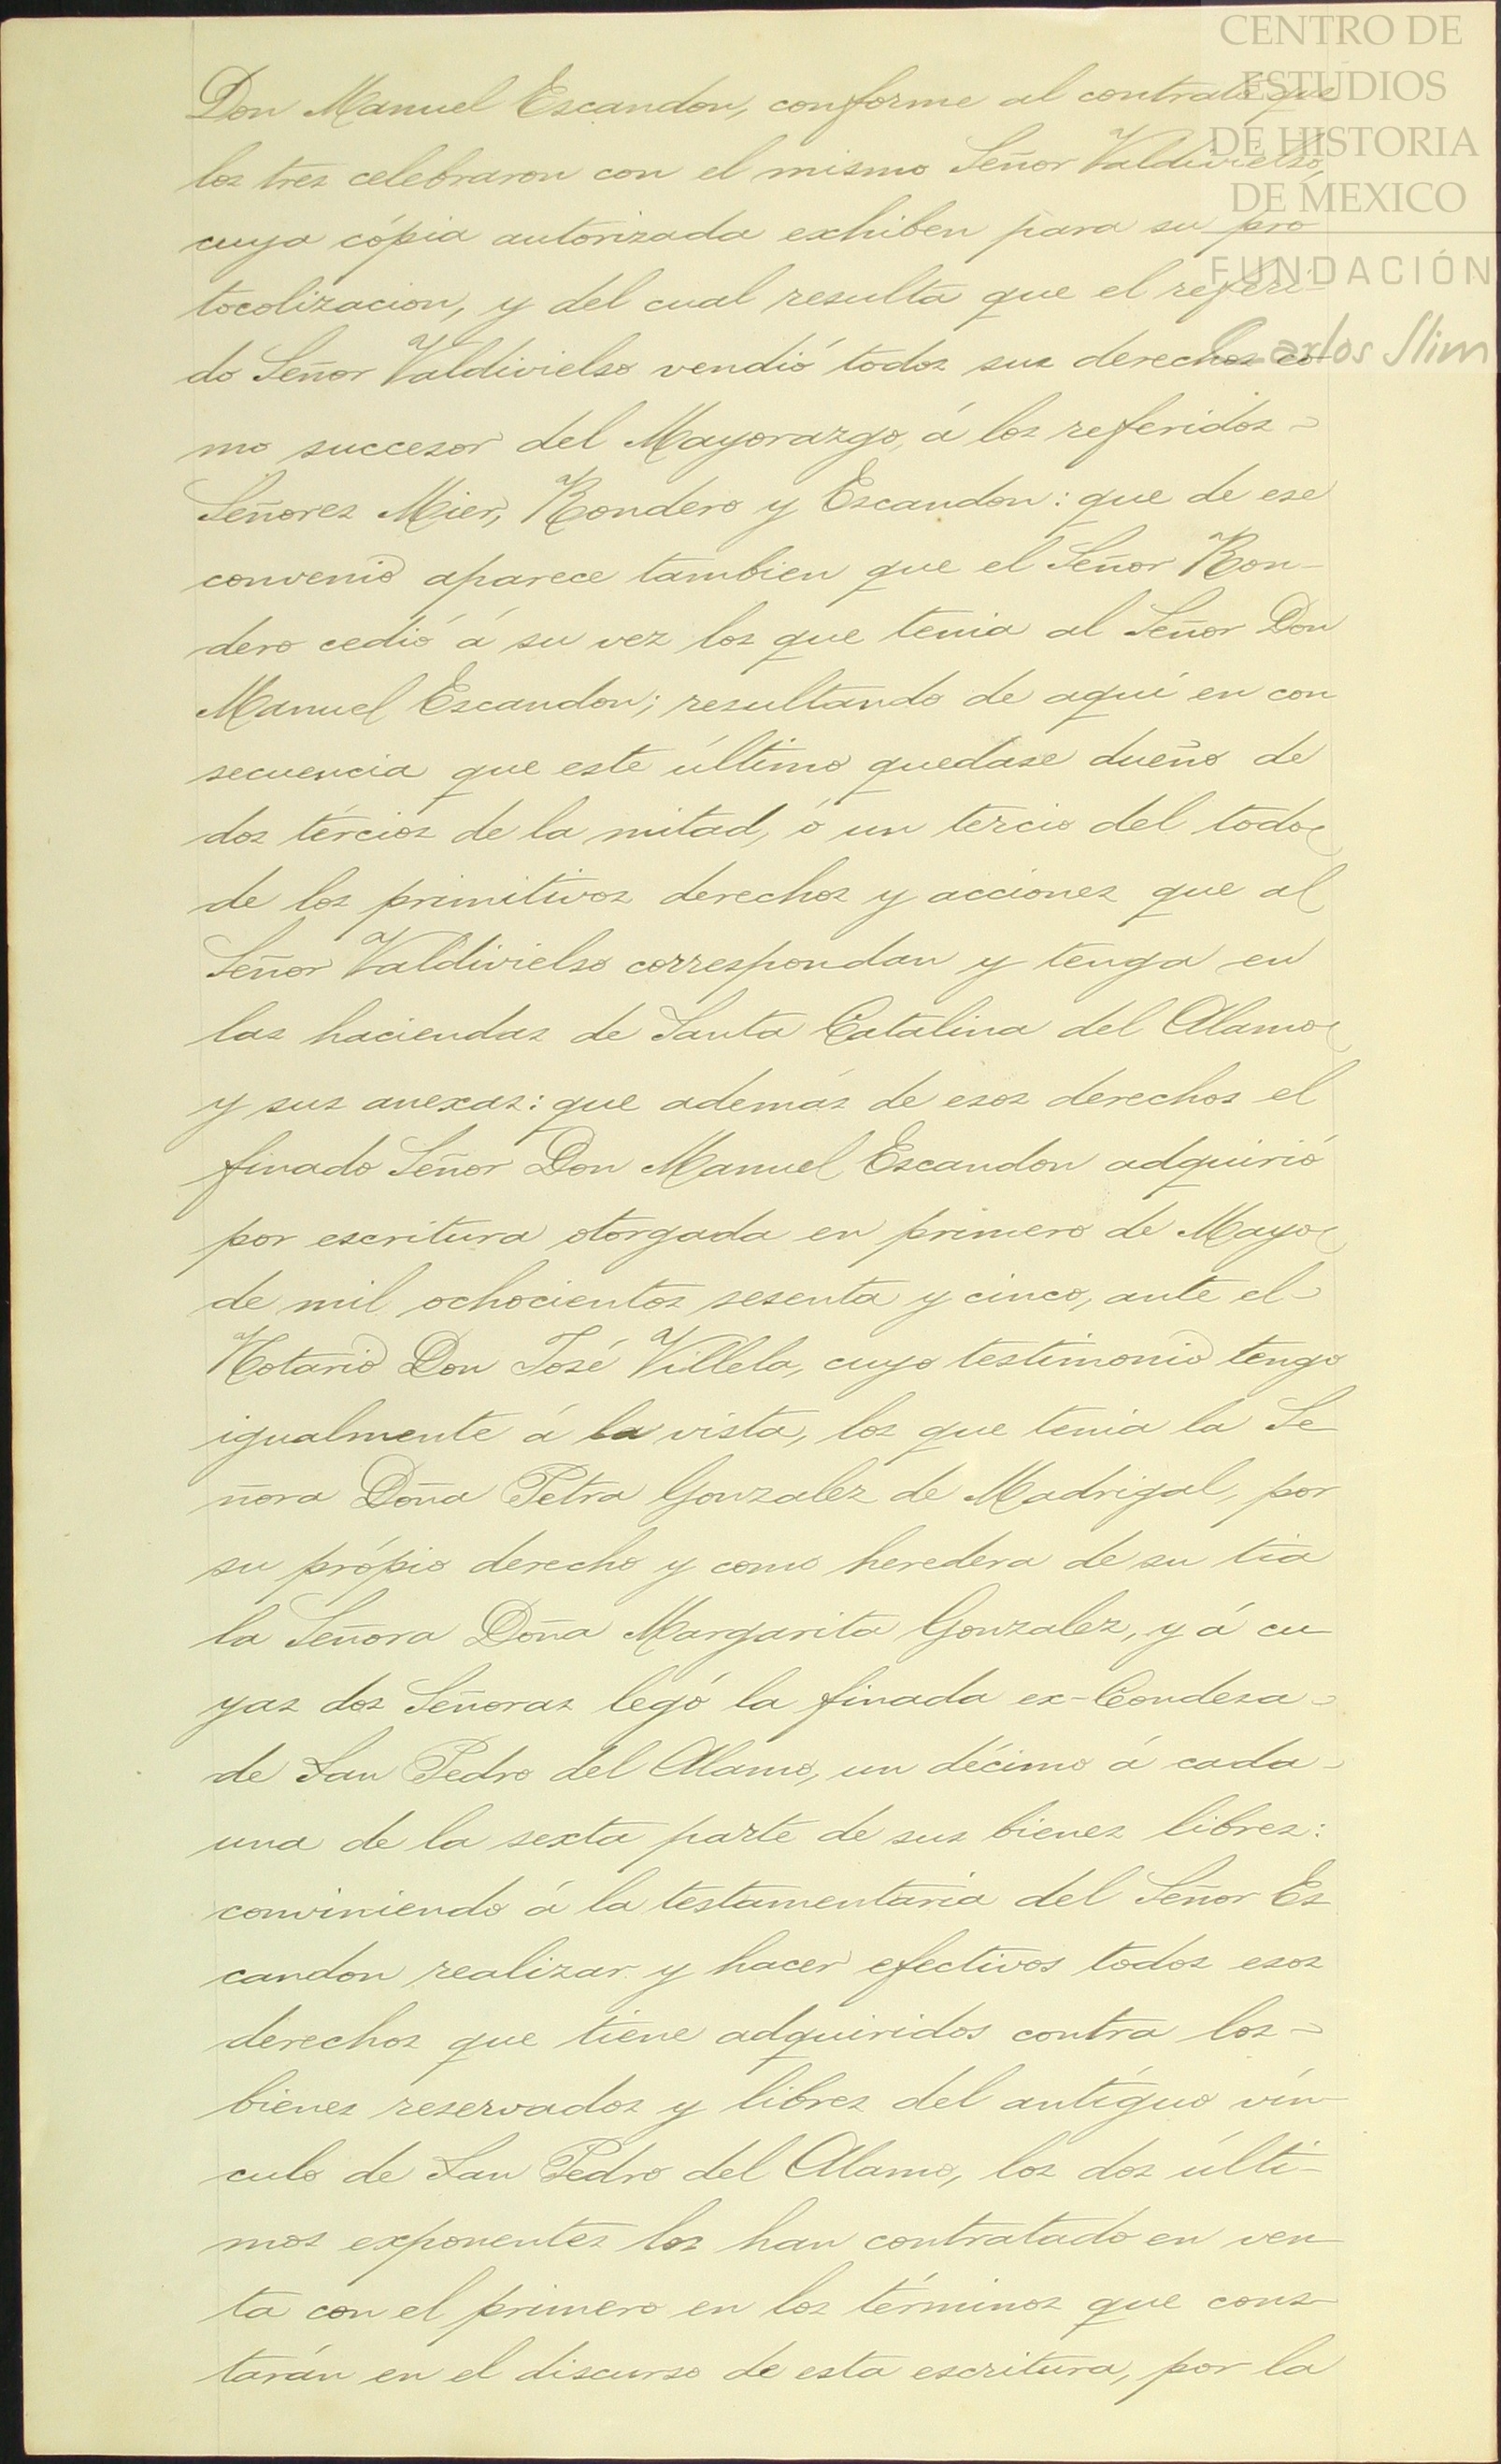 CENTRO DE
ESTUDIOS
DE HISTORIA
DE MEXICO
FUNDACIÓN
Carlos Slim
Don Manuel Escandon, conforme al contrato que
los tres celebraron con el mismo Señor Valdivielso,
cuya cópia autorizada exhiben para su pro
tocolizacion, y del cual resulta que el referi-
do Señor Valdivielso vendió todos sus derechos co-
mo succesor del Mayorazgo, á los referidos
Señores Mier, Rondero y Escandon: que de ese
convenio aparece tambien que el Señor Ron-
dero cedió á su vez los que tenia al Señor Don
Manuel Escandon; resultando de aquí en con
secuencia que este último quedase dueño de
dos tércios de la mitad, ó un tercio del todo
de los primitivos derechos y acciones que al
Señor Valdivielso correspondan y tenga en
las haciendas de Santa Catalina del Alamo
y sus anexas: que además de esos derechos el
finado Señor Don Manuel Escandon adquirió
por escritura otorgada en primero de Mayo
de mil ochocientos sesenta y cinco, ante el
Notario Don José Villela, cuyo testimonio tengo
igualmente á la vista, los que tenia la Se
ñora Doña Petra Gonzalez de Madrigal, por
su própio derecho y como heredera de su tia
la Señora Doña Margarita Gonzalez, y á cu
yas dos Señoras legó la finada ex-Condesa
de San Pedro del Alamo, un décimo á cada
una de la sexta parte de sus bienes libres:
conviniendo á la testamentaria del Señor Es
candon realizar y hacer efectivos todos esos
derechos que tiene adquiridos contra los
bienes reservados y libres del antíguo vín
culo de San Pedro del Alamo, los dos últi-
mos exponentes los han contratado en ven
ta con el primero en los términos que cons
tarán en el discurso de esta escritura, por la